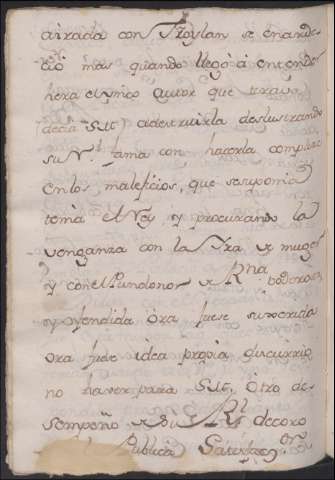 airada con Froylan se enarde-
cio mas quando llegò à entender
hera el unico autor que tirava
(decia Su M.) a destruirla deslustrando
su Rl. fama con hacerla complice
en los maleficios, que suponia
tenia el Rey, y procurando la
venganza con la Ira de muger
y con el Pundonor de Rna. poderosa
y ofendida Ora fuese sugerida
ora fuese idea propia discurrio
no haver para Su M. Otro de-
sempeño de su Rl. decoro
Publica Satisfaccon.